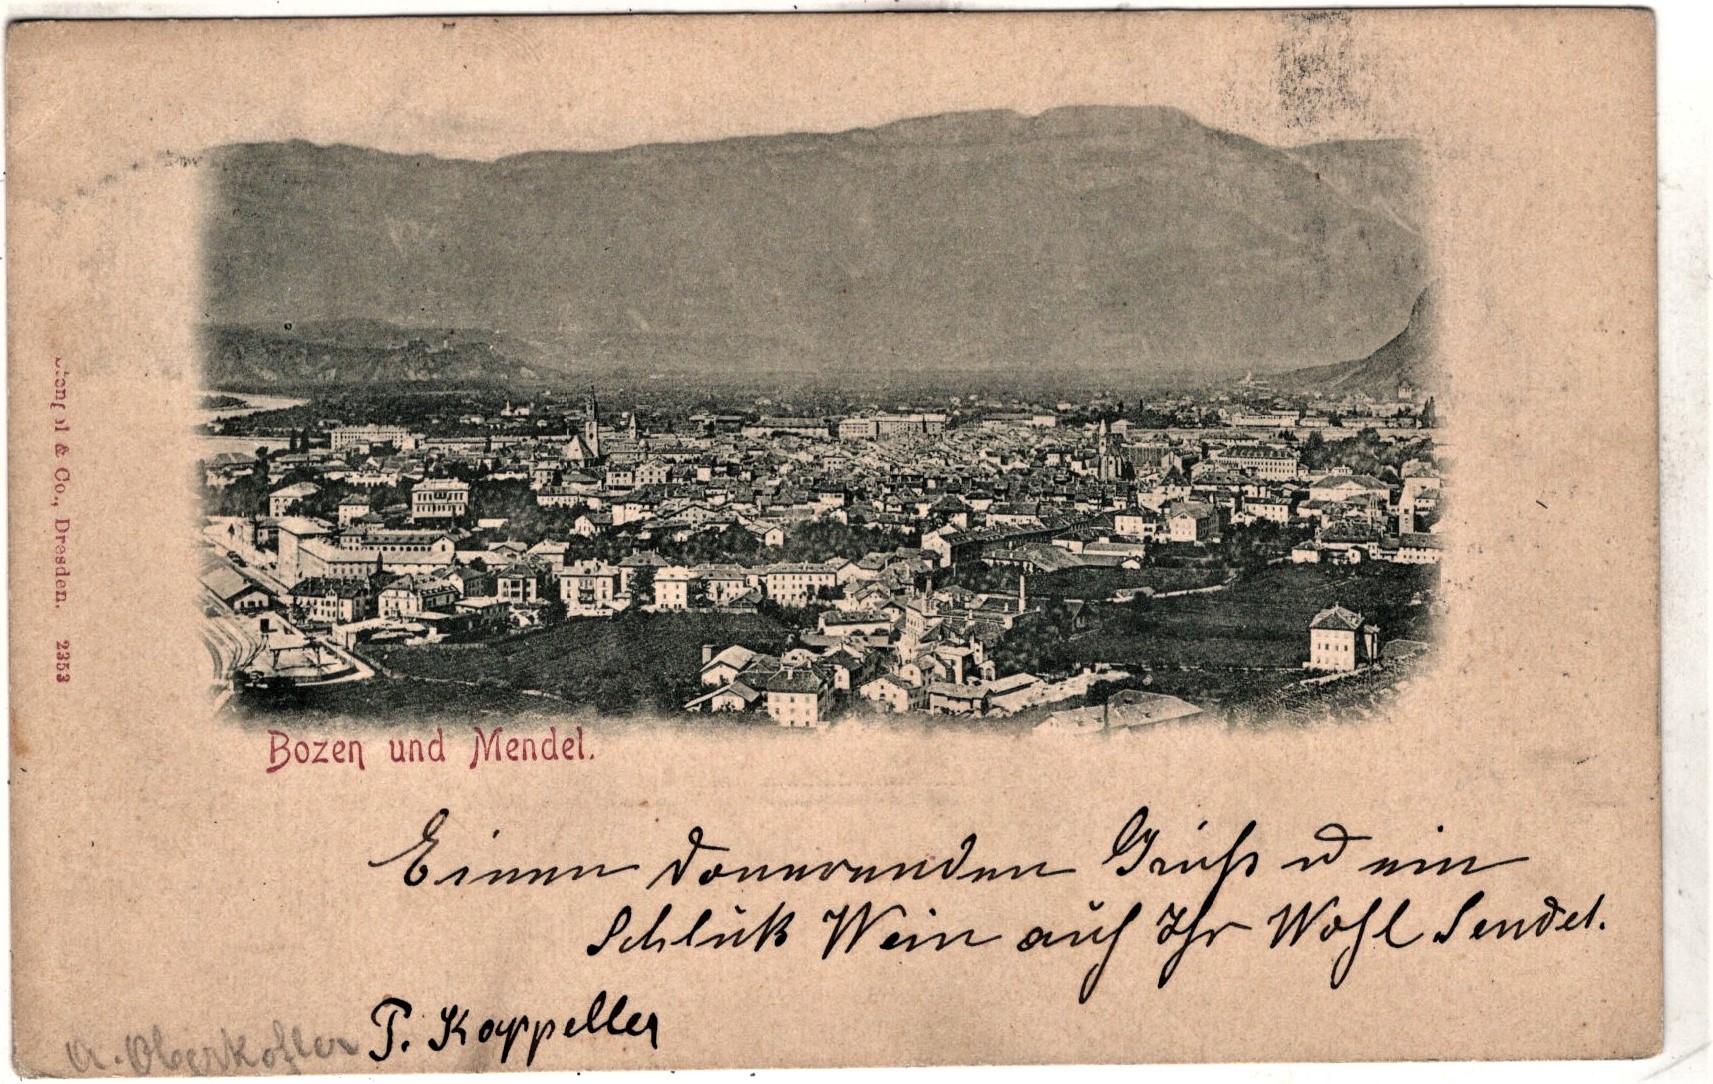 Stengel & Co., Dresden. 2353
Bozen und Mendel.
Einen donnernden Gruß u ein
Schluk Wein auf Ihr Wohl Sendet.
P. Kappeller
A. Oberkofler